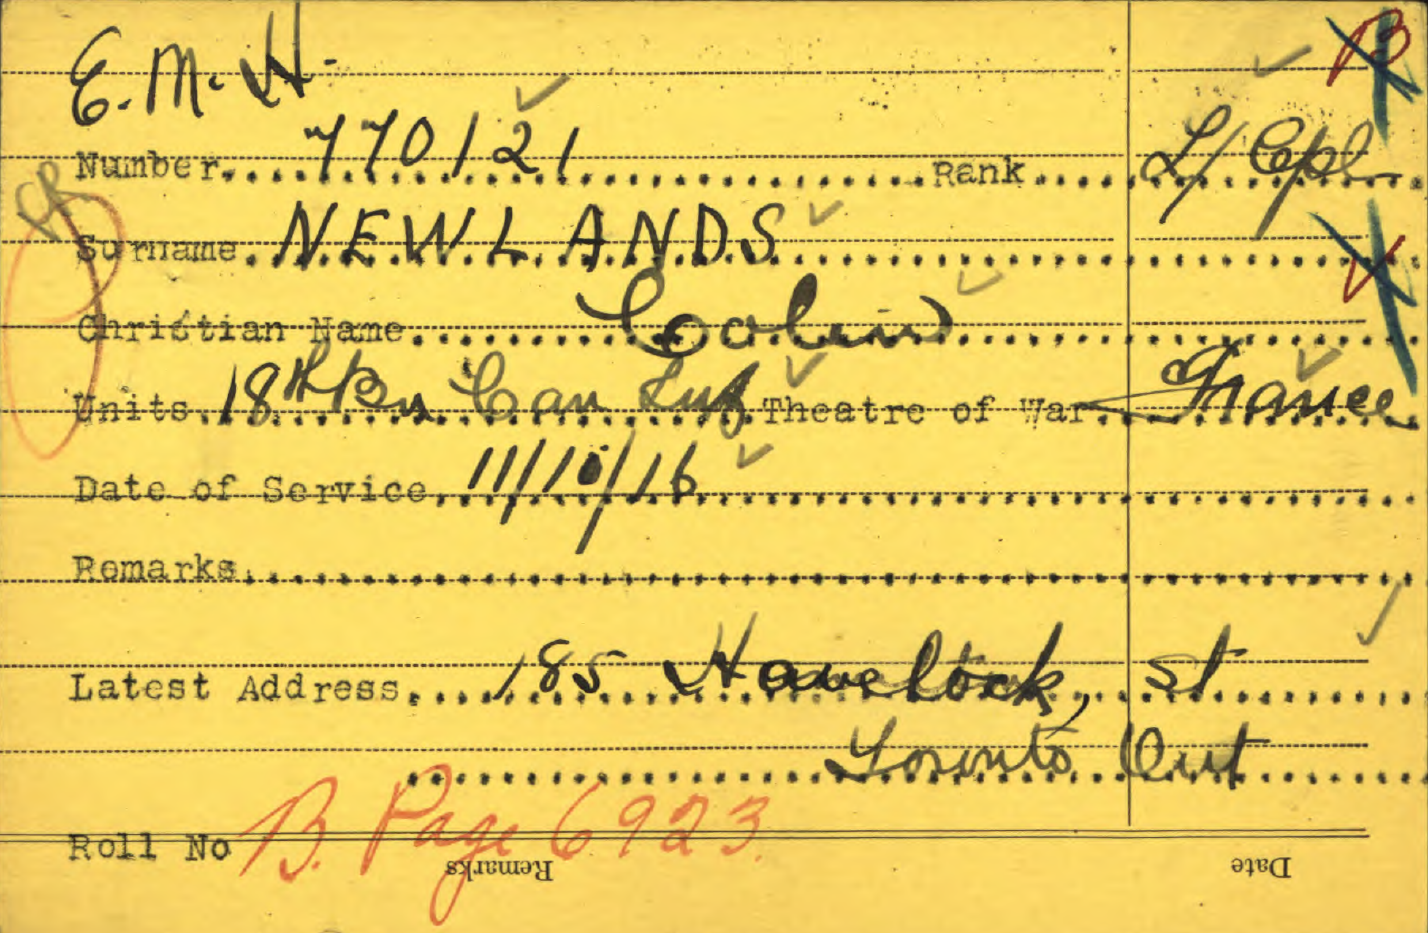 E. M. H.
B
Number 770121 Rank L/Cpl
Surname NEWLANDS
Christian Name Colin
Units 18th Bn Can Inf Theatre of War France
Date of Service 11/10/16
Remarks
Latest Address 185 Havelock, St
Toronto Ont
Roll No B. Page 6923.
Remarks Date